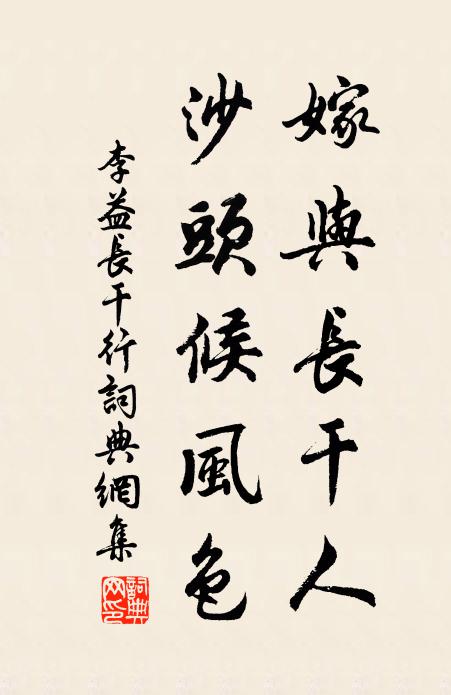 嫁與長干人
沙頭候風色
李益長干行詞典網集
詞典網印